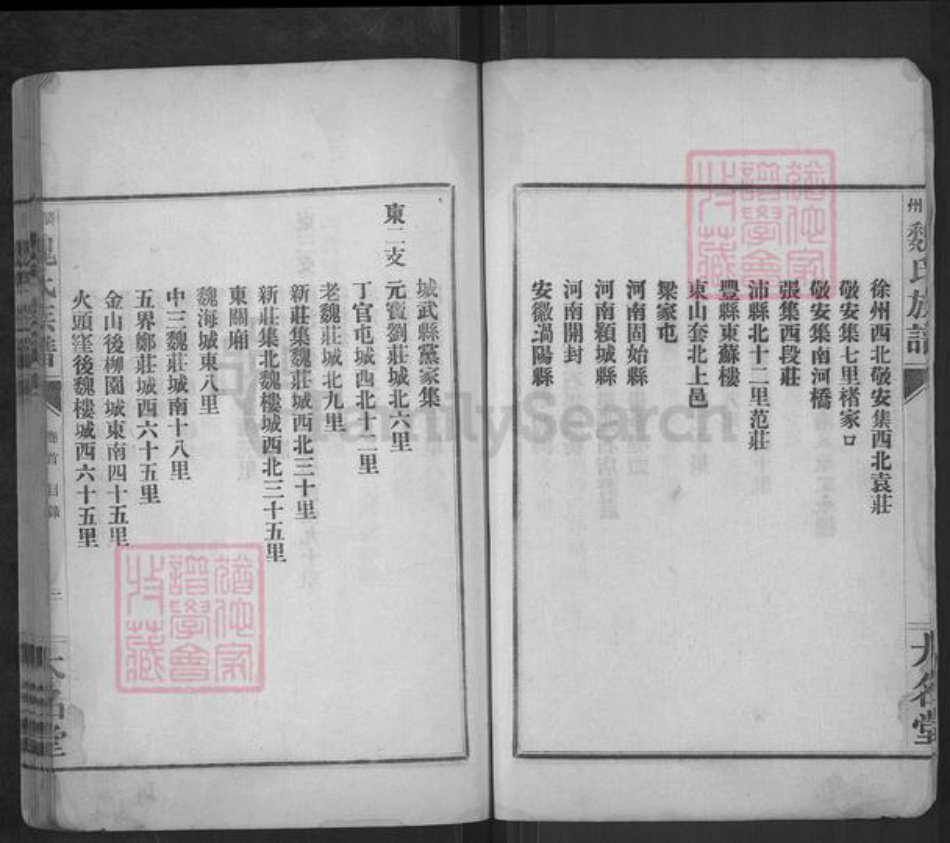 州魏氏族譜
大名堂
徐州西北敬安集西北袁莊
敬安集七里楮家口
敬安集南河橋
張集西段莊
沛縣北十二里范莊
豐縣東蘇樓
東山套北上邑
梁家屯
河南固始縣
河南潁城縣
河南開封
安徽渦陽縣
城武縣黨家集
東二支
元寶劉莊城北六里
丁官屯城西北十二里
老魏莊城北九里
新莊集魏莊城西北三十里
新莊集北魏樓城西北三十五里
東關廂
魏海城東八里
中三魏莊城南十八里
五界鄭莊城西六十五里
金山後柳園城東南四十五里
火頭窪後魏樓城西六十五里
魏氏族譜
卷首 目錄
大名堂
譜學會
收藏
FamilySearch